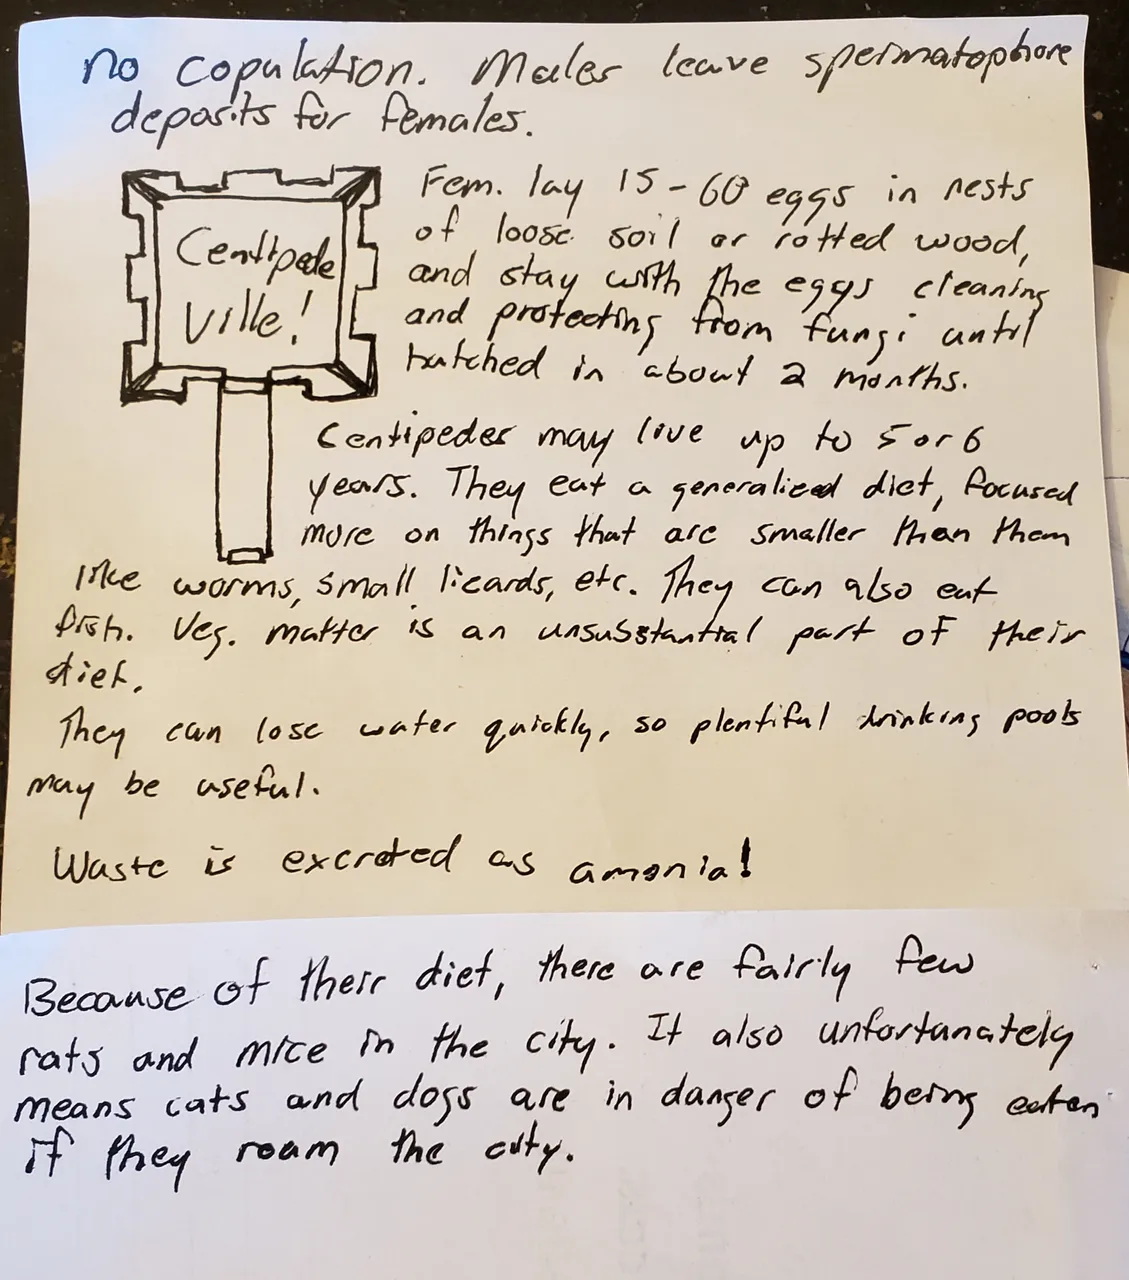 no copulation. Males leave spermatophore
deposits for females.
Centipede
Ville!
Fem. lay 15-60 eggs in nests
of loose soil or rotted wood,
and stay with the eggs cleaning
and protecting from fungi until
hatched in about 2 months.
Centipedes may live up to 5 or 6
years. They eat a generalized diet, focused
more on things that are smaller than them
like worms, small lizards, etc. They can also eat
fish. Veg. matter is an unsubstantial part of their
diet.
They can lose water quickly, so plentiful drinking pools
may be useful.
Waste is excreted as amonia!
Because of their diet, there are fairly few
rats and mice in the city. It also unfortunately
means cats and dogs are in danger of being eaten
if they roam the city.